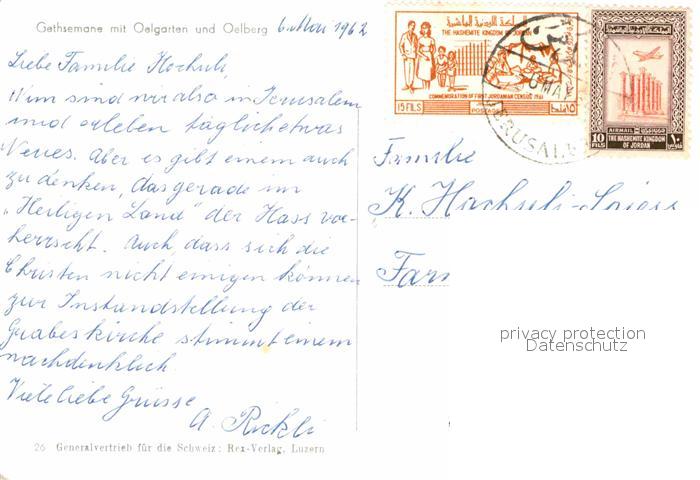 Gethsemane mit Oelgarten und Oelberg 6. Mai 1962
Liebe Familie Hochuli,
Nun sind wir also in Jerusalem
und erleben täglich etwas
Neues. Aber es gibt einem auch
zu denken, dass gerade im
„Heiligen Land" der Hass vor-
herrscht. Auch, dass sich die
Christen nicht einigen können
zur Instandstellung der
Grabeskirche stimmt einem
nachdenklich.
Viele liebe Grüsse
A. Rickli
26 Generalvertrieb für die Schweiz: Rex-Verlag, Luzern
المملكة الاردنية الهاشمية
THE HASHEMITE KINGDOM OF JORDAN
COMMEMORATION OF FIRST JORDANIAN CENSUS 1961
15 FILS
POSTAGE
١٥ فلسا
JERUSALEM
AIRMAIL
10 FILS
THE HASHEMITE KINGDOM
OF JORDAN
١٠ فلوس
Familie
K. Hochuli-
privacy protection
Datenschutz